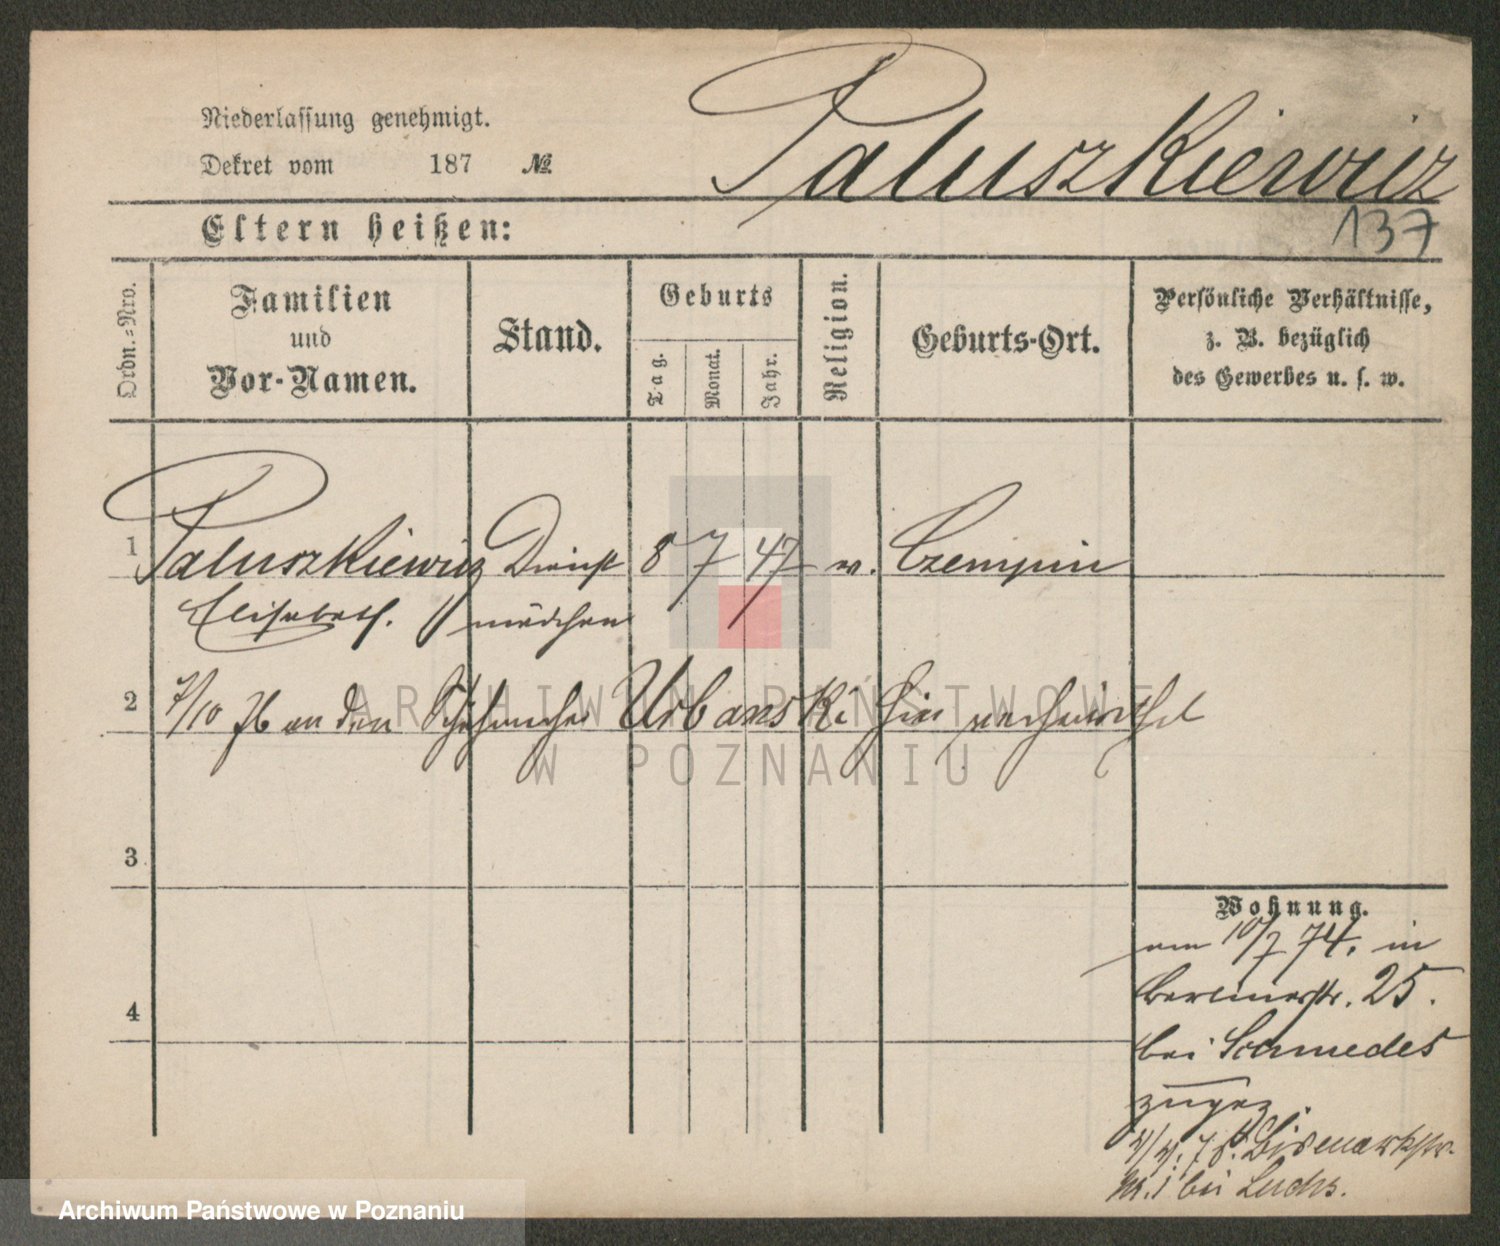 Niederlassung genehmigt.
Dekret vom 187 №
Paluszkiewicz
137
Eltern heißen:
Ordn.=Nro.
Familien
und
Vor-Namen.
Stand.
Geburts
Tag.
Monat.
Jahr.
Religion.
Geburts-Ort.
Persönliche Verhältnisse,
z. B. bezüglich
des Gewerbes u. s. w.
1 Paluszkiewicz Dienst 8 7 47 Czempin
Elisabeth. mädchen
2 7/10 76 an den Urbanski hier verheirathet
ARCHIWUM PAŃSTWOWE
W POZNANIU
3
4
Wohnung.
am 10/7 74. in
Berlinerstr. 25.
bei Schmedes
zugez.
Bismarkstr.
Nr. 1 bei Luchs.
Archiwum Państwowe w Poznaniu